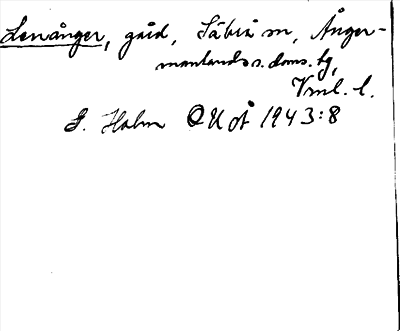 Lenånger, gård, Säbrå sn, Ånger-
manlands s. doms. tg,
Vnl. l.
G. Holm OUoÅ 1943:8